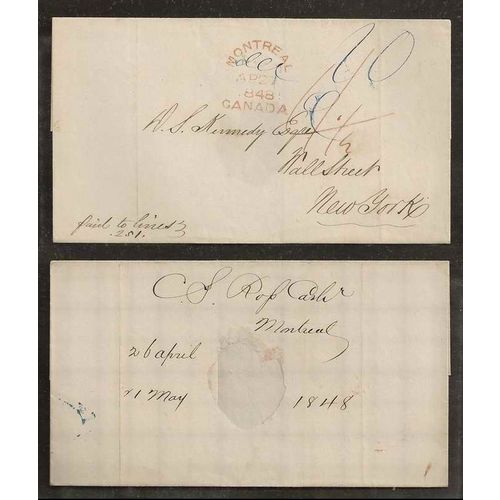 MONTREAL
AP 27
1848
CANADA
20
W. S. Kennedy Esqr
Wall Street
New York
paid to lines
251.
C. S. Ross Cashr
Montreal
26 april
1 May 1848